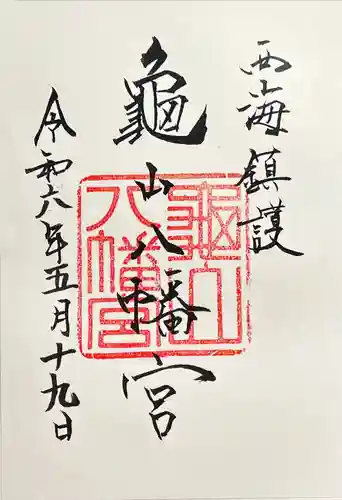 西海鎮護
龜山八幡宮
令和六年五月十九日
龜山
八幡宮